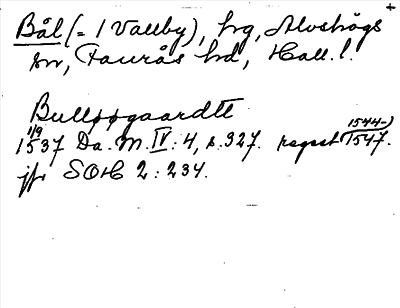 Bål (= 1 Vallby), hrg, Alvshögs
sn, Faurås hd, Hall. l.
Bulløøgaardtt
1/9
1537 Da. M. IV: 4, s. 327. regest 1544-)1547.
jfr SOH 2: 234.